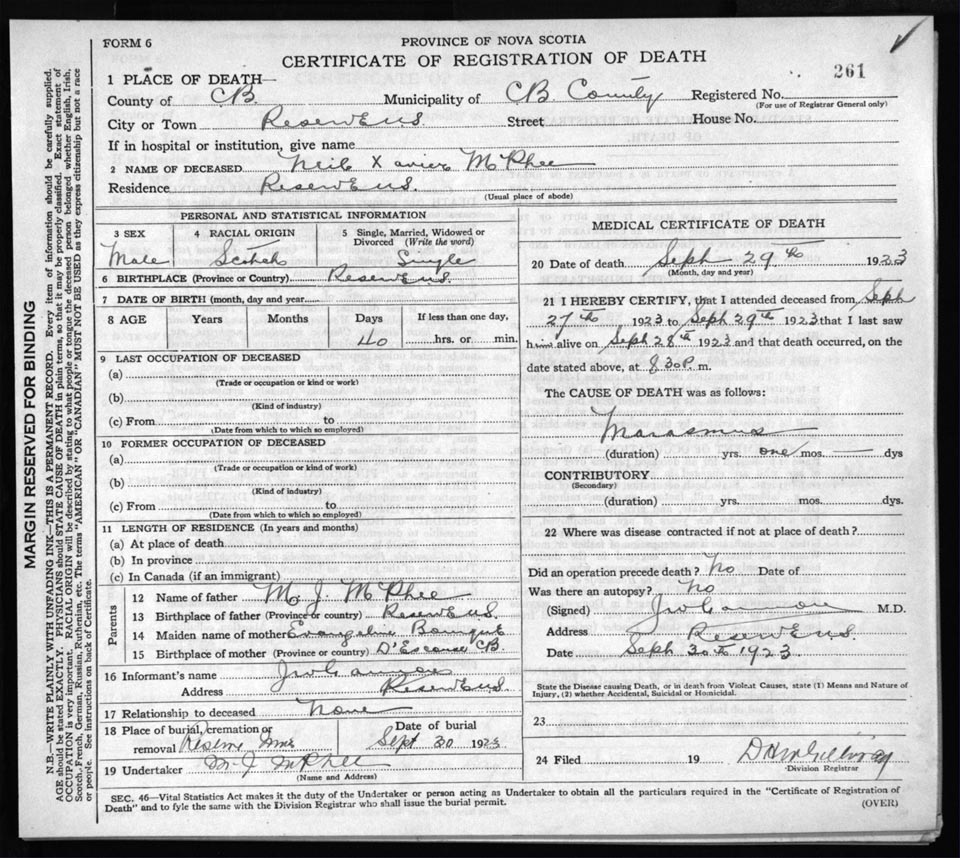 FORM 6
PROVINCE OF NOVA SCOTIA
CERTIFICATE OF REGISTRATION OF DEATH
261
1 PLACE OF DEATH—
County of CB. Municipality of CB. County Registered No.
(For use of Registrar General only)
City or Town Street House No.
If in hospital or institution, give name
2 NAME OF DECEASED Neil Xavier McPhee
Residence
(Usual place of abode)
PERSONAL AND STATISTICAL INFORMATION
3 SEX 4 RACIAL ORIGIN 5 Single, Married, Widowed or Divorced (Write the word)
Male Scotch Single
6 BIRTHPLACE (Province or Country)
7 DATE OF BIRTH (month, day and year)
8 AGE Years Months Days If less than one day,
40 hrs. or min.
9 LAST OCCUPATION OF DECEASED
(a)
(Trade or occupation or kind of work)
(b)
(Kind of industry)
(c) From to
(Date from which to which so employed)
10 FORMER OCCUPATION OF DECEASED
(a)
(Trade or occupation or kind of work)
(b)
(Kind of industry)
(c) From to
(Date from which to which so employed)
11 LENGTH OF RESIDENCE (In years and months)
(a) At place of death
(b) In province
(c) In Canada (if an immigrant)
Parents
12 Name of father M. J. McPhee
13 Birthplace of father (Province or country)
14 Maiden name of mother Evangeline
15 Birthplace of mother (Province or country) D'Escouse CB.
16 Informant's name
Address
17 Relationship to deceased None
18 Place of burial, cremation or removal Reserve Mines
Date of burial
Sept 30 1923
19 Undertaker M. J. McPhee
(Name and Address)
MEDICAL CERTIFICATE OF DEATH
20 Date of death Seph 29th 1923
(Month, day and year)
21 I HEREBY CERTIFY, that I attended deceased from Seph
27th 1923 to Seph 29th 1923 that I last saw
him alive on Seph 28th 1923 and that death occurred, on the
date stated above, at 8 30 P. m.
The CAUSE OF DEATH was as follows:
Marasmus
(duration) yrs. one mos. — dys
CONTRIBUTORY
(Secondary)
(duration) yrs. mos. dys.
22 Where was disease contracted if not at place of death?
Did an operation precede death? No Date of
Was there an autopsy? No
(Signed) M.D.
Address
Date Seph 30th 1923
State the Disease causing Death, or in death from Violent Causes, state (1) Means and Nature of
Injury, (2) whether Accidental, Suicidal or Homicidal.
23
24 Filed 19
Division Registrar
SEC. 46—Vital Statistics Act makes it the duty of the Undertaker or person acting as Undertaker to obtain all the particulars required in the "Certificate of Registration of
Death" and to fyle the same with the Division Registrar who shall issue the burial permit.
(OVER)
MARGIN RESERVED FOR BINDING
N.B.—WRITE PLAINLY WITH UNFADING INK—THIS IS A PERMANENT RECORD. Every item of information should be carefully supplied.
AGE should be stated EXACTLY. PHYSICIANS should STATE CAUSE OF DEATH in plain terms, so that it may be properly classified. Exact statement of
OCCUPATION is very important. RACIAL ORIGIN will be described by stating to what people or tongue the deceased person belonged whether English, Irish,
Scotch, French, German, Russian, Ruthenian, etc. The terms "AMERICAN" OR "CANADIAN" MUST NOT BE USED as they express citizenship but not a race
or people. See instructions on back of Certificate.